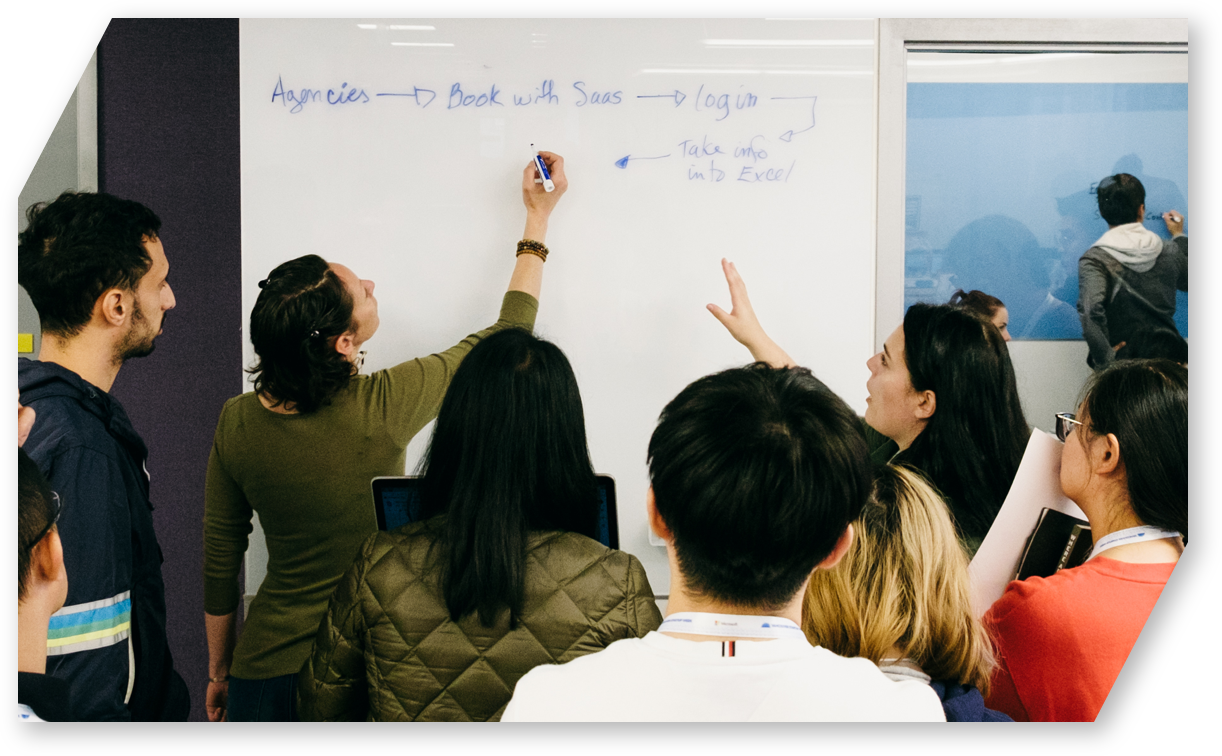 Agencies → Book with Saas → login
Take info
into Excel